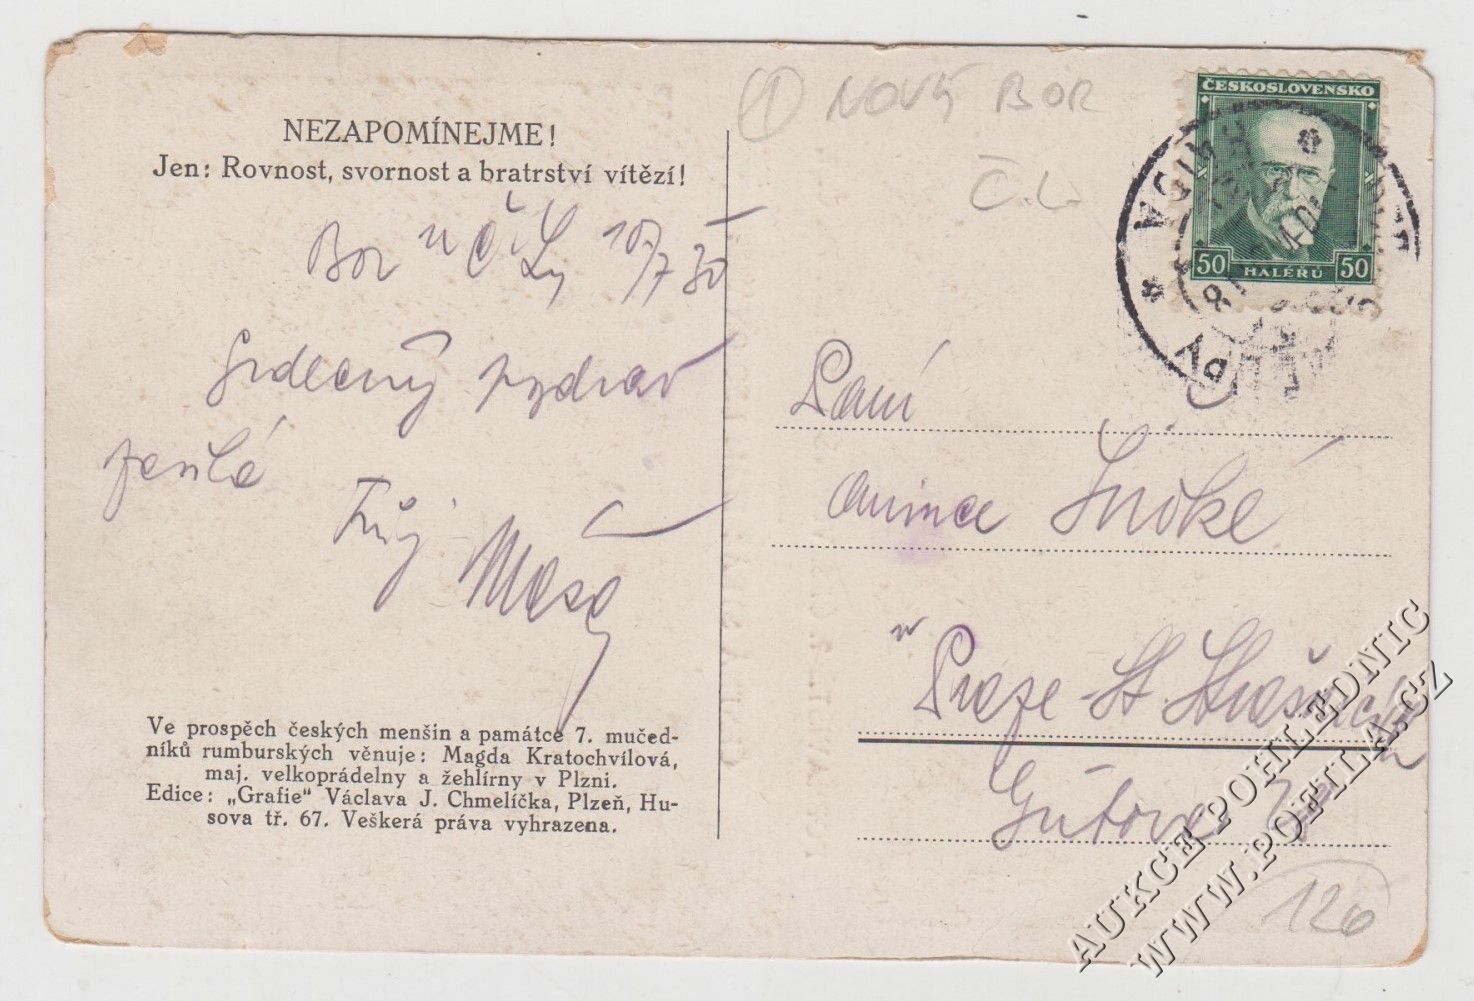 NEZAPOMÍNEJME!
Jen: Rovnost, svornost a bratrství vítězí!
Bor u Č. L. 10/7 35
Srdečný pozdrav
zasílá
Tvůj
Ve prospěch českých menšin a památce 7. mučed-
níků rumburských věnuje: Magda Kratochvílová,
maj. velkoprádelny a žehlírny v Plzni.
Edice: „Grafie" Václava J. Chmelíčka, Plzeň, Hu-
sova tř. 67. Veškerá práva vyhrazena.
1 NOVÝ BOR
Č. L.
ČESKOSLOVENSKO
50 HALÉŘŮ 50
Paní
v
Praze - St
Gutova
126
AUKCE POHLEDNIC
WWW.POFILA.CZ